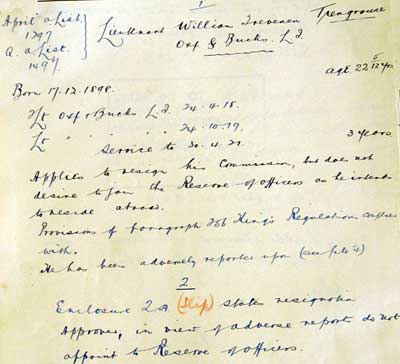 1
April a List.
1297
Q. a List.
1297.
Lieutenant William Trevenen Trengrouse
Oxf & Bucks. L.I.
age 22 5/12 yrs
Born 17.12.1898.
2/Lt Oxf & Bucks L.I. 24.4.18.
Lt " " " 24.10.19.
Service to 30.4.21. 3 years
Applies to resign his Commission, but does not
desire to join the Reserve of officers as he intends
to reside abroad.
Provisions of paragraph 256 King's Regulation complied
with.
He has been adversely reported upon (see file
2
Enclosure 2A (Slip) states resignation
Approved, in view of adverse report do not
appoint to Reserve of Officers.